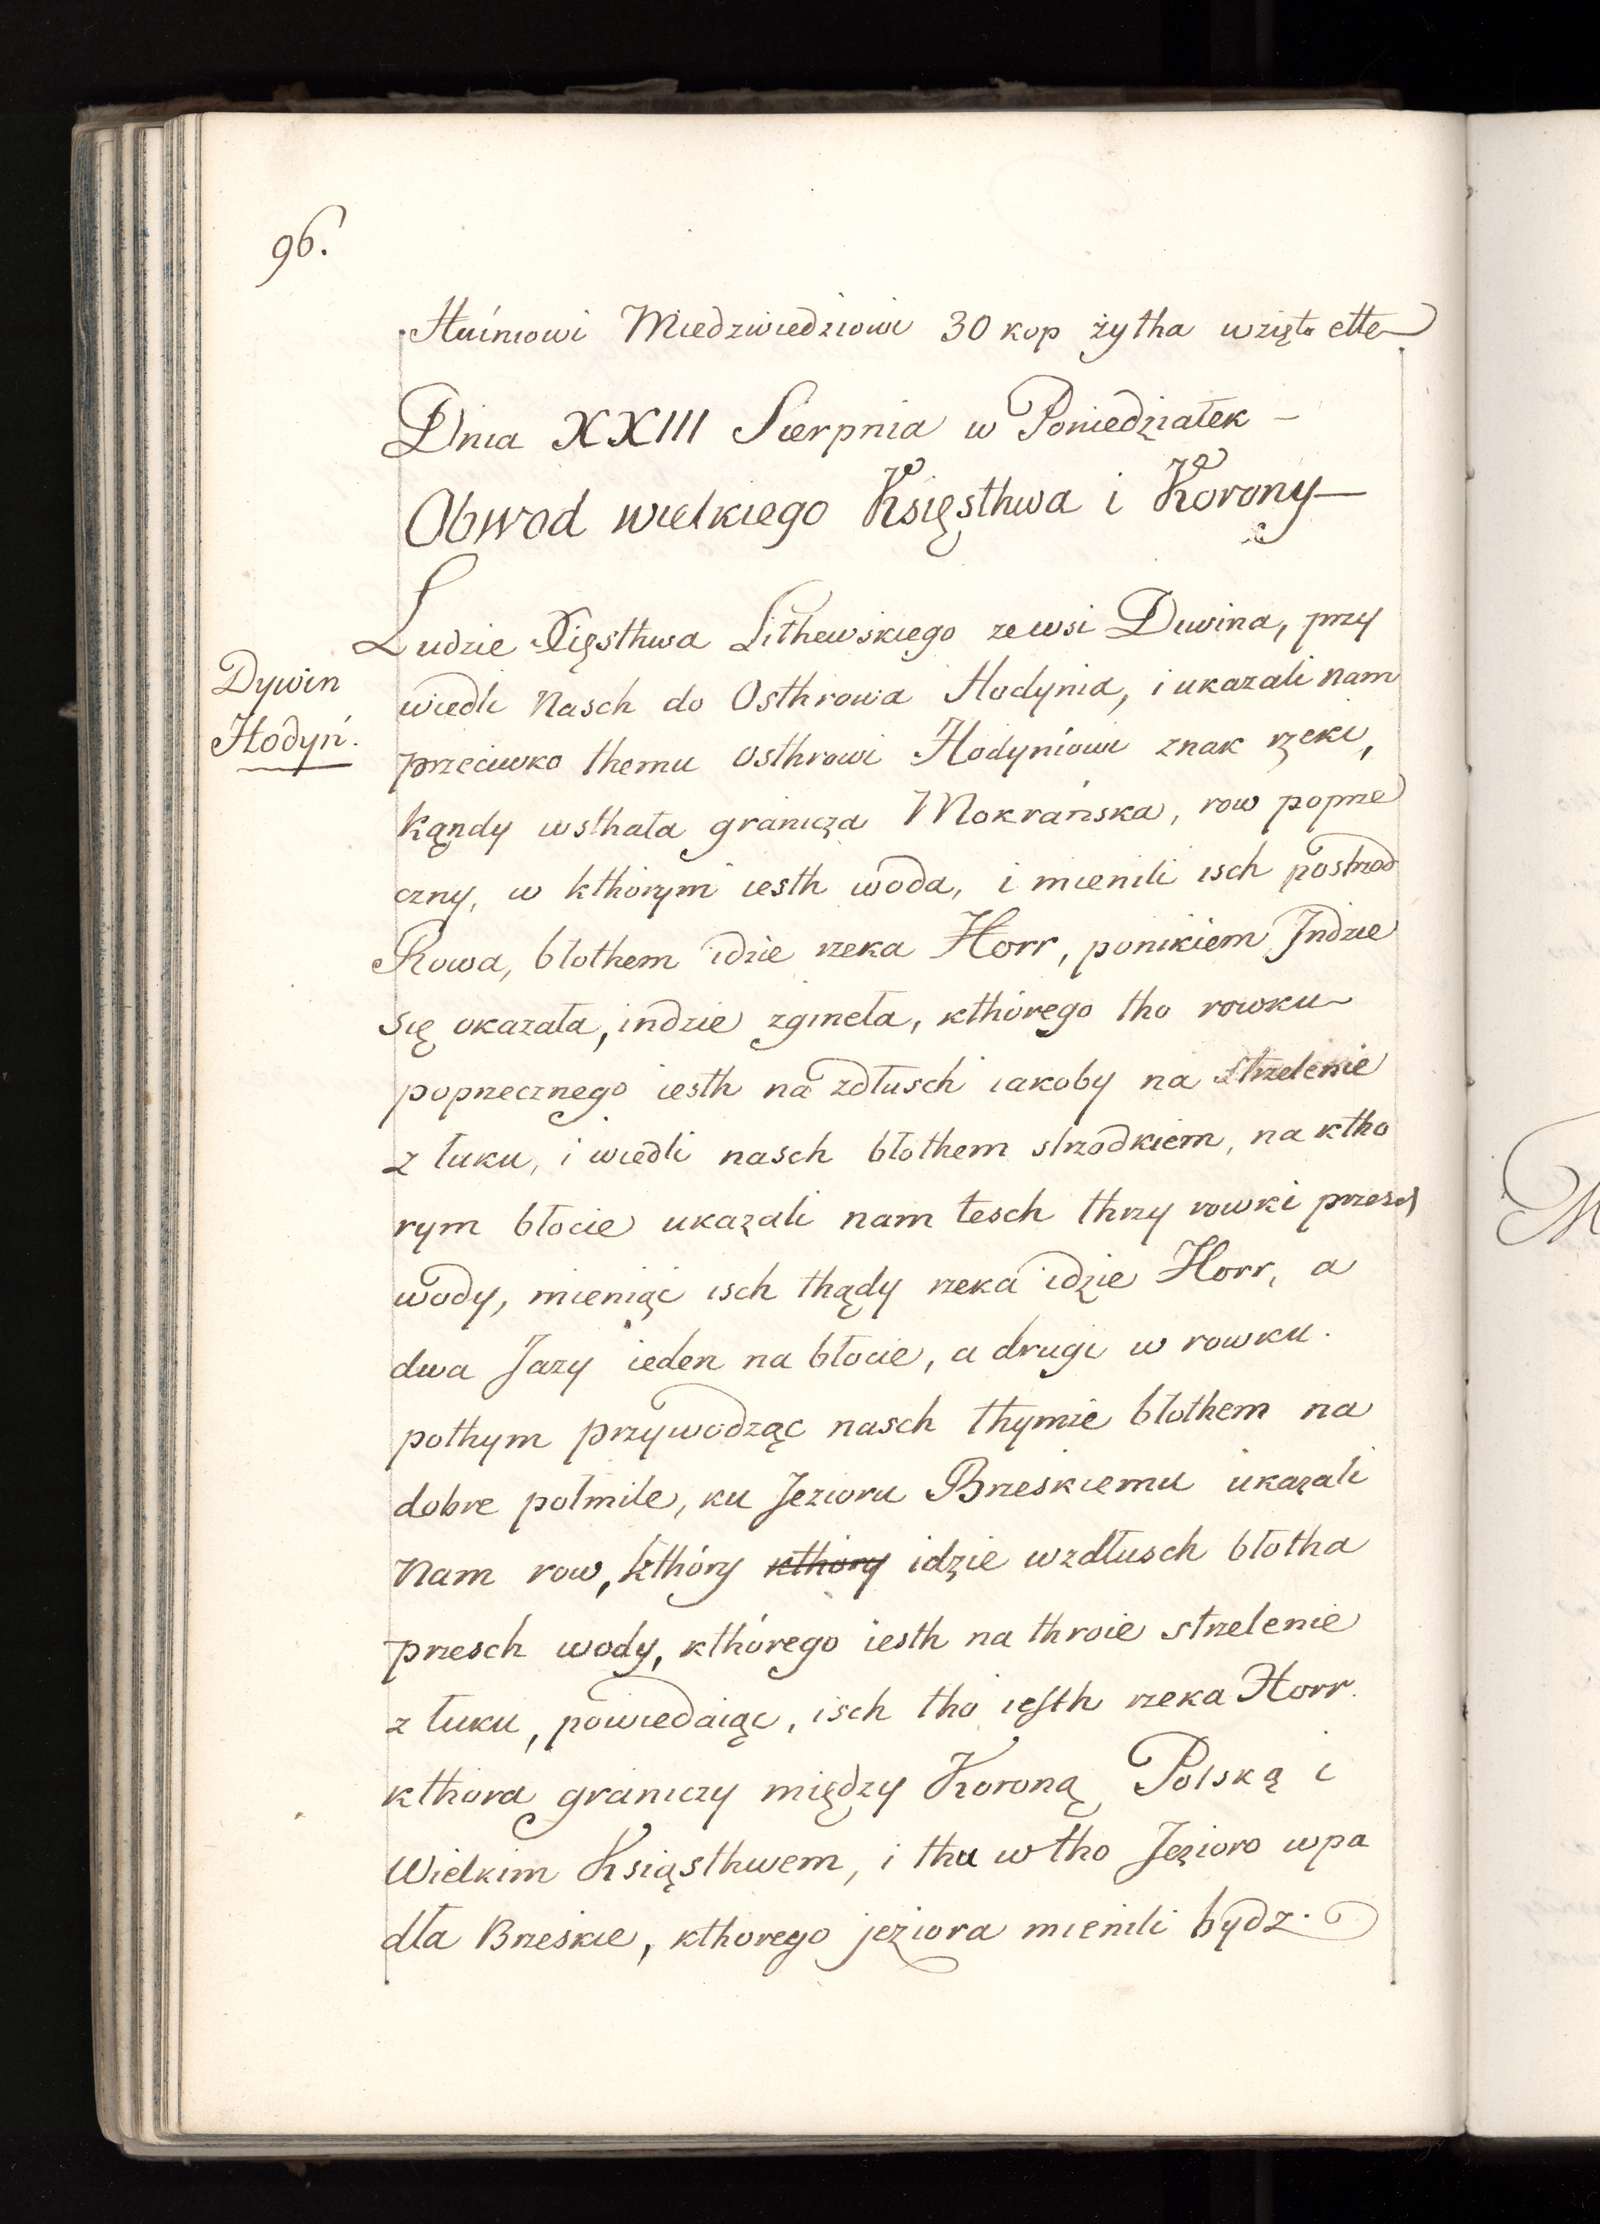 96.
Huiniowi Miedzwiedziowi 30 kop żytha wzięto ette
Dnia XXIII Sierpnia w Poniedziałek –
Obwod wielkiego Księsthwa i Korony –
Ludzie Xięsthwa Lithewskiego ze wsi Dwina, przy
Dywin
Hodyń.
wiedli Nasch do Osthrowa Hodynia, i ukazali nam
przeciwko themu Osthrowi Hodyniowi znak rzeki,
kąndy wsthała granicza Mokrańska, row poprze
czny, w kthorym iesth woda, i mienili isch postrzod
Rowa, błothem idzie rzeka Horr, ponikiem Indzie
się okazała, indzie zgineła, kthórego tho rowku
poprzecznego iesth na zdłusch iakoby na strzelenie
z łuku, i wiedli nasch błothem strzodkiem, na ktho
rym błocie ukazali nam tesch thrzy rowki przesch
wody, mieniąc isch thądy rzeka idzie Horr, a
dwa Jazy ieden na błocie, a drugi w rowku.
pothym przywodząc nasch thymze błothem na
dobre polmile, ku Jezioru Brzeskiemu ukazali
Nam row, kthóry kthory idzie wzdłusch błotha
przesch wody, kthórego iesth na throie strzelenie
z łuku, powiedaiąc, isch tho iesth rzeka Horr.
kthora graniczy między Koroną Polską i
Wielkim Ksiąsthwem, i thu w tho Jezioro wpa
dła Brzeskie, kthorego jeziora mienili bydz.